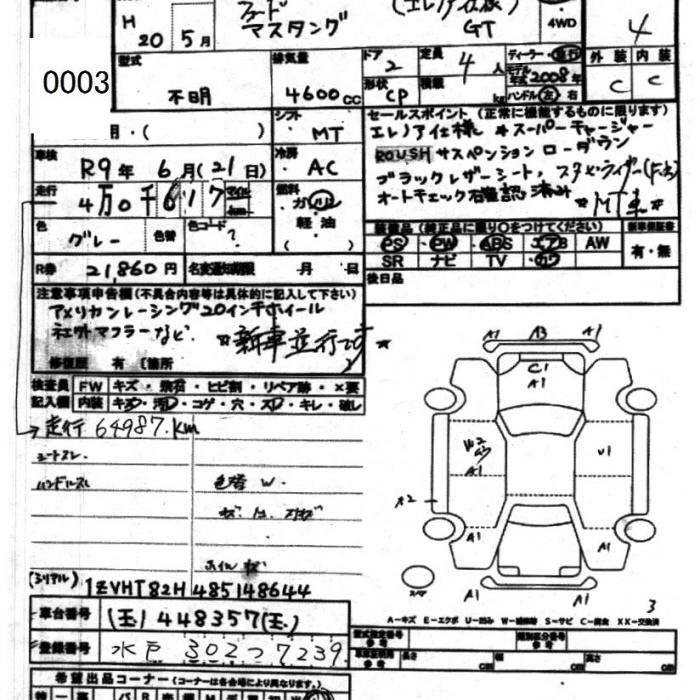 フォード (エレノア仕様)
H 20 5月 マスタング GT 4WD 4
0003
型式 不明 排気量 4600cc ドア 2 定員 4人 ディーラー・並行 外装 内装
形状 CP 積載 kg モデル年式 2008年 C C
ハンドル 左 右
月・( ) シフト MT
セールスポイント (正常に機能するものに限ります)
エレノア仕様 スーパーチャージャー
ROUSHサスペンション ローダウン
ブラックレザーシート、スタビライザー
オートチェック石確認済み ★MT車★
車検 R9年 6月(21日) 冷房 AC
走行 4万0千617 マイル km 燃料 ガソリン
軽・油
色 グレー 色替 色コード ?
装備品 (純正品に限り○をつけてください) 新車保証書
PS・PW・ABS・エアB AW 有・無
SR ナビ TV・カワ
R券 21,860円 名変通知期限 月 日
後日品
注意事項申告欄(不具合内容等は具体的に記入して下さい)
アメリカンレーシング20インチホイール
社外マフラーなど ★新車並行です★
修復歴 有 〔箇所
検査員 FW キズ・飛石・ヒビ割・リペア跡・×要
記入欄 内装 キズ・汚レ・コゲ・穴・スレ・キレ・破レ
走行 64987.km
シートスレ.
ハンドルスレ 色替 W.
ホイル キズ
(シリアル) 1ZVHT82H485148644
車台番号 (玉)448357(玉.)
登録番号 水戸 302つ7239
希望出品コーナー(コーナーは各会場により異なります。)
A1 A3 A1
C1
A1
W2
A1
U1
A2
A1 A1
スペア
A1 A1
3
A=キズ E=エクボ U=凹み W=補修跡 S=サビ C=腐食 XX=交換済
型式指定番号 参考 類別区分番号 参考
車両重量 参考 長さ cm 幅 cm 高さ cm